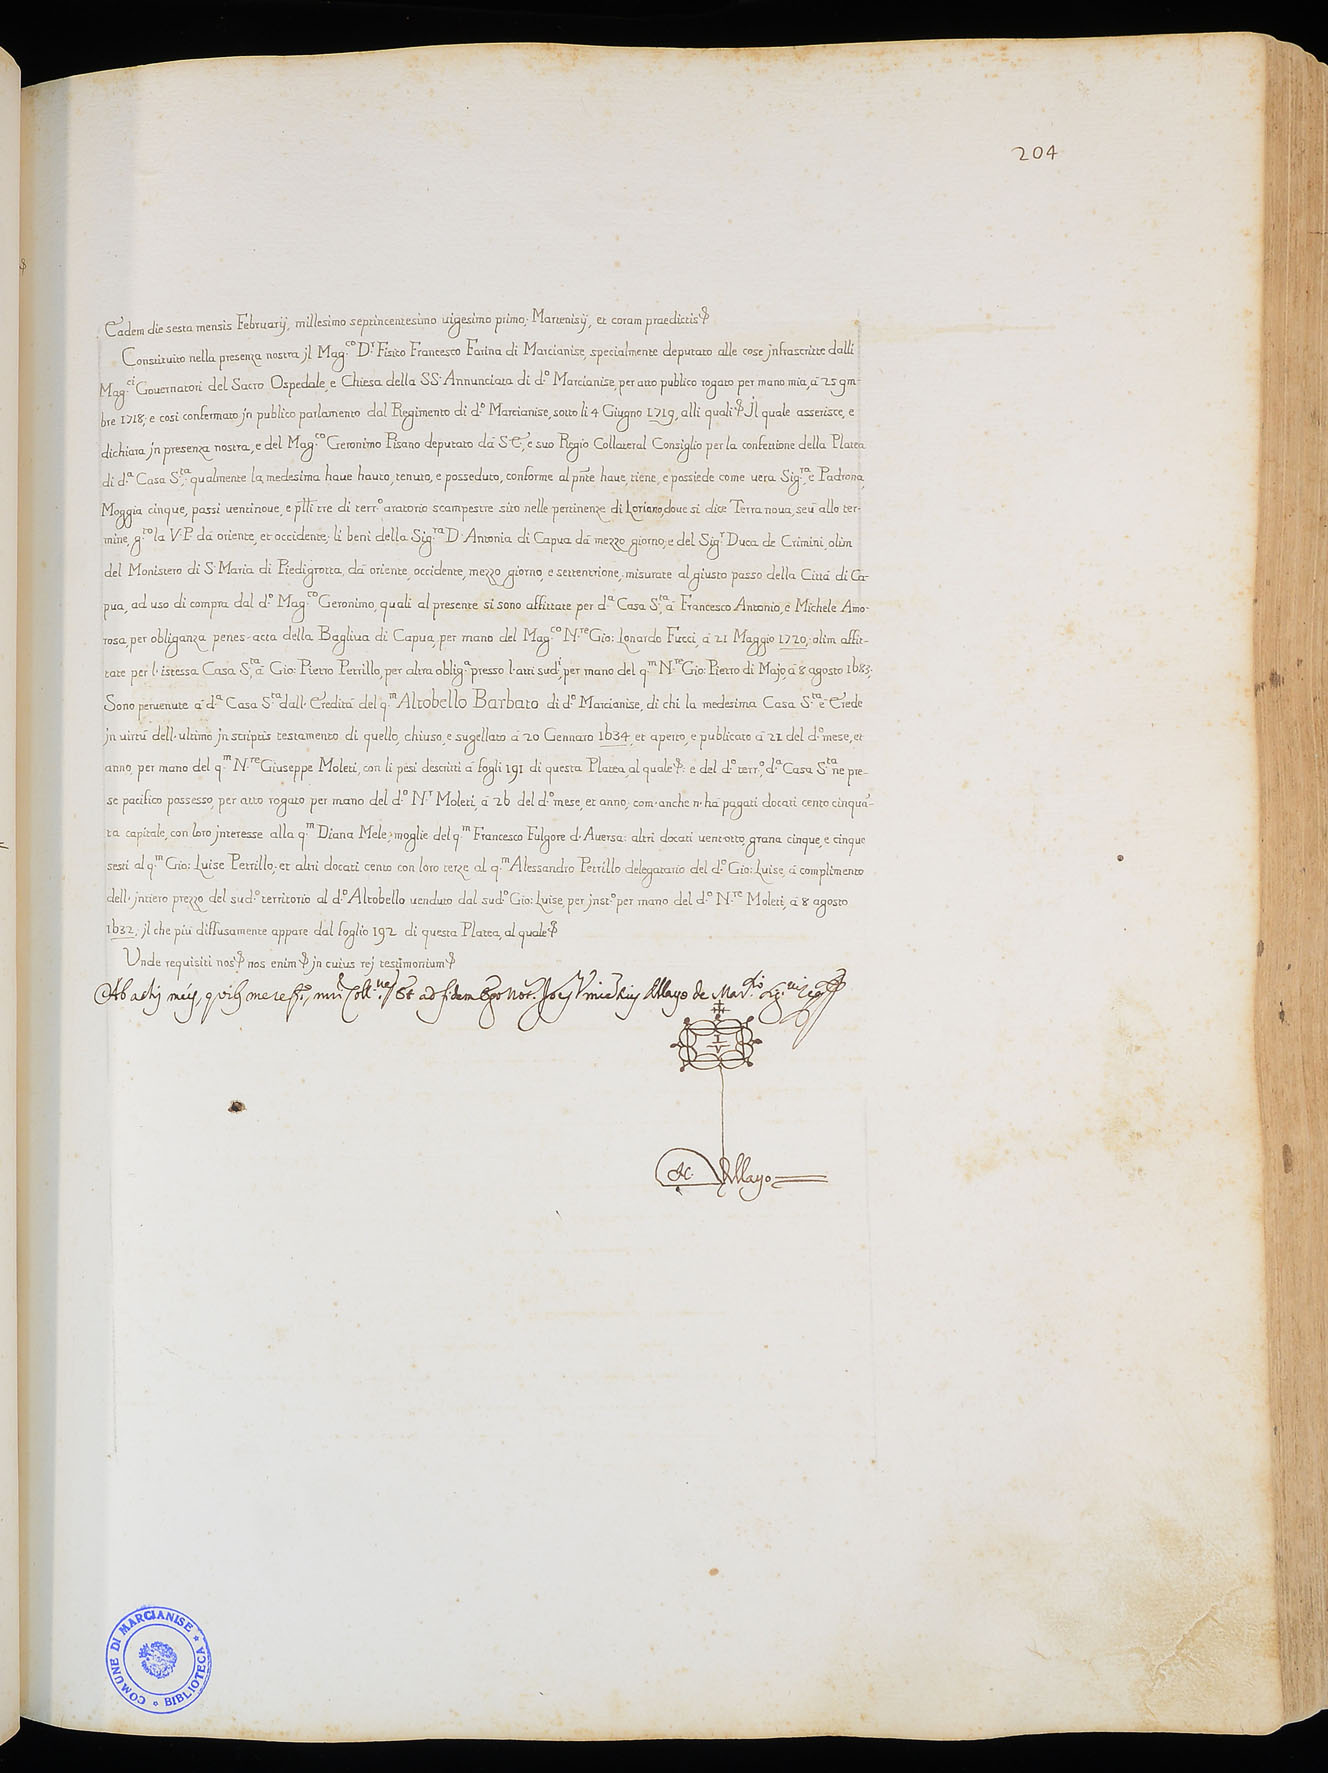 204
Eadem die sesta mensis Februarij, millesimo septincentesimo uigesimo primo; Martenisij, et coram praedictis
Constituito nella presenza nostra jl Mag.co D.r Fisico Francesco Farina di Marcianise, specialmente deputato alle cose jnfrascritte dalli
Mag.ci Gouernatori del Sacro Ospedale, e Chiesa della SS. Annunciata di d.o Marcianise, per atto publico rogato per mano mia, á 25 9m-
bre 1718; e cosi confermato jn publico parlamento dal Regimento di d.o Marcianise, sotto li 4 Giugno 1719, alli quali Jl quale asserisce, e
dichiara jn presenza nostra, e del Mag.co Geronimo Pisano deputato dá S.E, e suo Regio Collateral Consiglio per la confettione della Platea
di d.a Casa S.ta, qualmente la medesima haue hauto, tenuto, e posseduto, conforme al pñte haue, tiene, e possiede come uera Sig.ra, e Padrona,
Moggia cinque, passi uentinoue, e pltĩ tre di terr.o aratorio scampestre sito nelle pertinenze di Loriano, doue si dice Terra noua, seú allo ter-
mine, g.to la V.P. dá oriente, et occidente; li beni della Sig.ra D. Antonia di Capua dá mezzo giorno, e del Sig.r Duca de Crimini, olim
del Monistero di S. Maria di Piedigrotta, dá oriente, occidente, mezzo giorno, e settentrione, misurate al giusto passo della Cittá di Ca-
pua, ad uso di compra dal d.o Mag.co Geronimo, quali al presente si sono affittate per d.a Casa S.ta á Francesco Antonio, e Michele Amo-
rosa, per obliganza penes acta della Bagliua di Capua, per mano del Mag.co N.re Gio: Lonardo Fucci, á 21 Maggio 1720; olim affit-
tate per l'istessa Casa S.ta, á Gio: Pietro Petrillo, per altra oblig.a presso l'atti sud.i, per mano del q.m N.re Gio: Pietro di Majo, á 8 agosto 1683;
Sono peruenute á d.a Casa S.ta dall'Ereditá del q.m Altobello Barbato di d.o Marcianise, di chi la medesima Casa S.ta é Erede
jn uirtú dell'ultimo jn scriptis testamento di quello, chiuso, e sugellato á 20 Gennaro 1634, et aperto, e publicato á 21 del d.o mese, et
anno, per mano del q.m N.re Giuseppe Moleti, con li pesi descritti á fogli 191 di questa Platea, al quale: e del d.o terr.o, d.a Casa S.ta ne pre-
se pacifico possesso, per atto rogato per mano del d.o N.r Moleti, á 26 del d.o mese, et anno; com'anche n'há pagati docati cento cinquã-
ta capitale, con loro jnteresse alla q.m Diana Mele, moglie del q.m Francesco Fulgore d'Auersa: altri docati uent'otto, grana cinque, e cinque
sesti al q.m Gio: Luise Petrillo; et altri docati cento con loro terze al q.m Alessandro Petrillo delegatario del d.o Gio: Luise, á complimento
dell'jntiero prezzo del sud.o territorio al d.o Altobello uenduto dal sud.o Gio: Luise, per jnst.o per mano del d.o N.re Moleti, á 8 agosto
1632; jl che piú diffusamente appare dal foglio 192 di questa Platea, al quale
Unde requisiti nos nos enim jn cuius rej testimonium
Ab actis meis, Et ad fidem Ego Not. Joes Allayo de Mar.
J V
Allayo
COMUNE DI MARCIANISE * BIBLIOTECA *